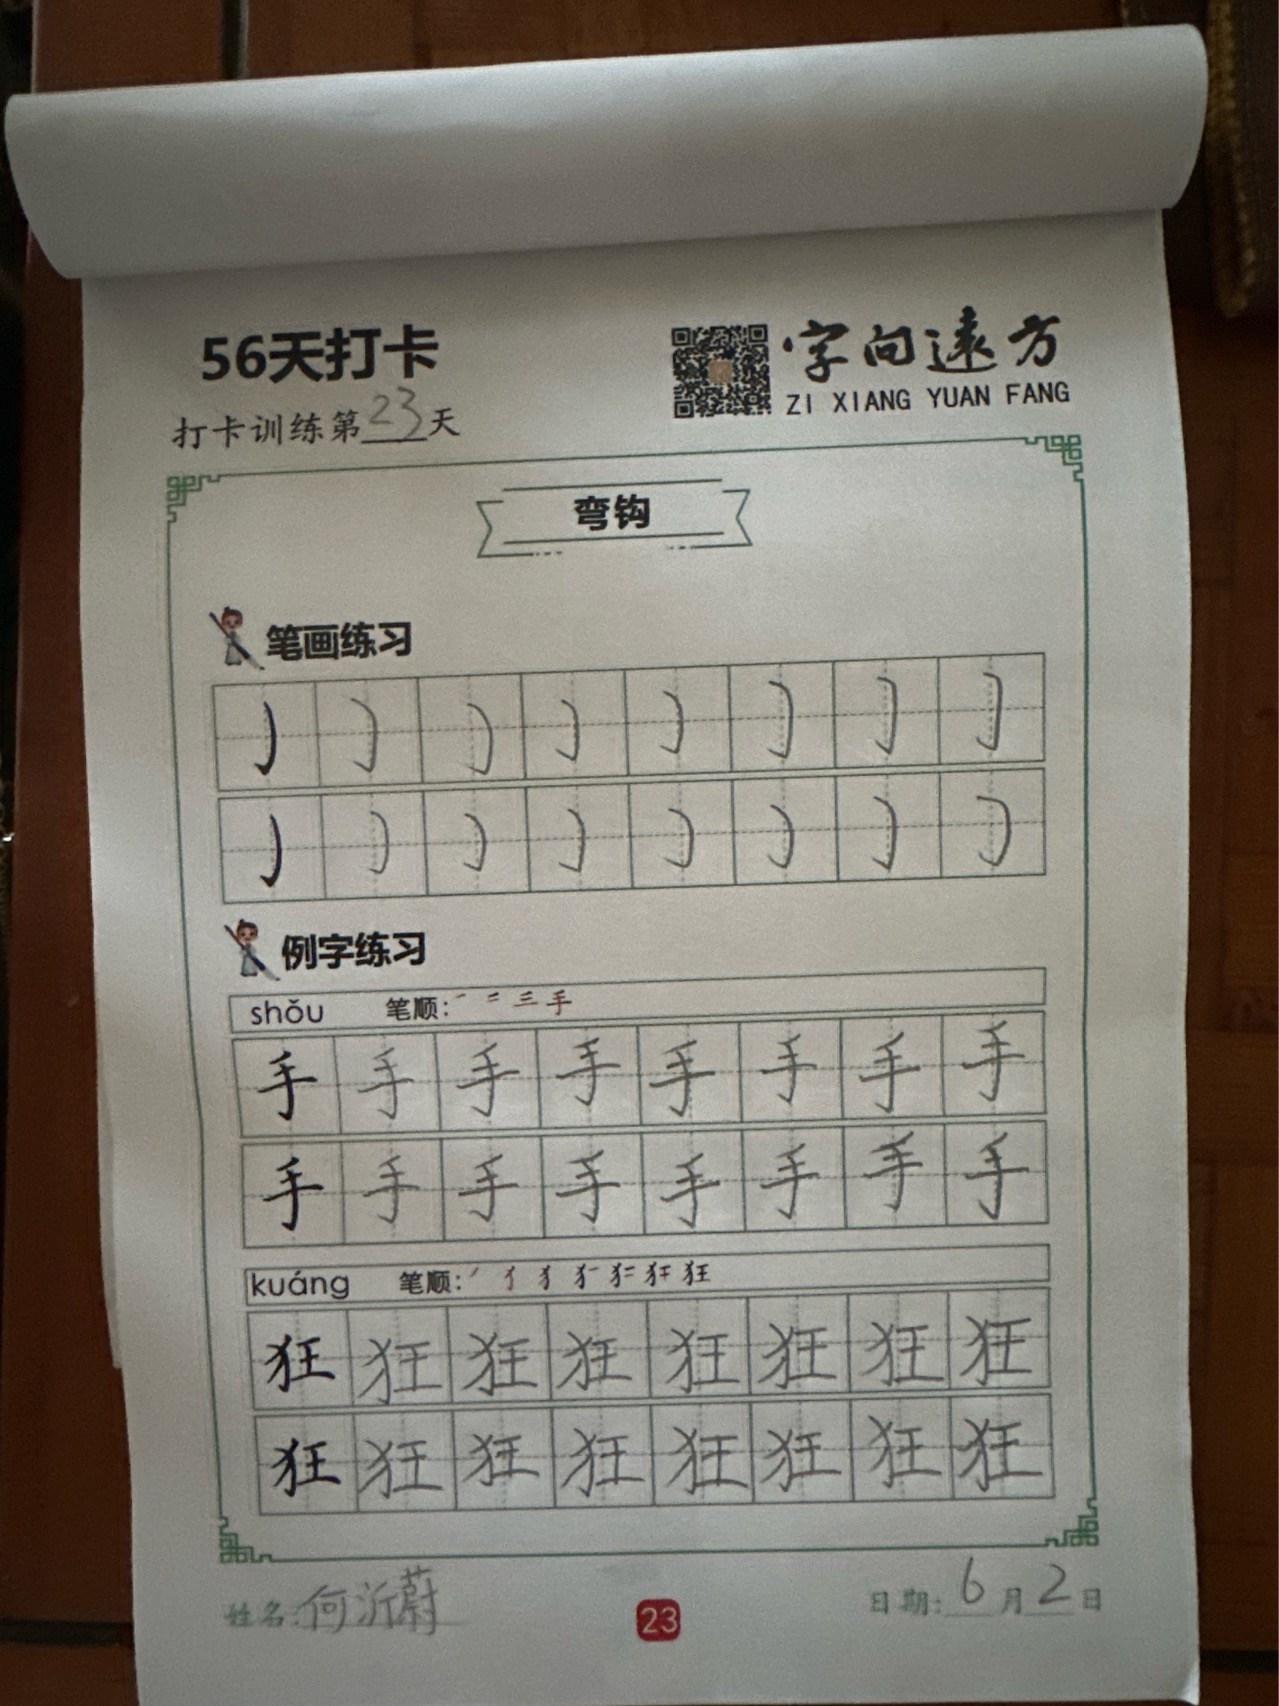 56天打卡
字向远方
ZI XIANG YUAN FANG
打卡训练第23天
弯钩
笔画练习
㇁ ㇁ ㇁ ㇁ ㇁ ㇁ ㇁ ㇁
㇁ ㇁ ㇁ ㇁ ㇁ ㇁ ㇁ ㇁
例字练习
shǒu 笔顺: ㇒ 二 三 手
手 手 手 手 手 手 手 手
手 手 手 手 手 手 手 手
kuáng 笔顺: 狂
狂 狂 狂 狂 狂 狂 狂 狂
狂 狂 狂 狂 狂 狂 狂 狂
姓名:何沂蔚
23
日期:6月2日